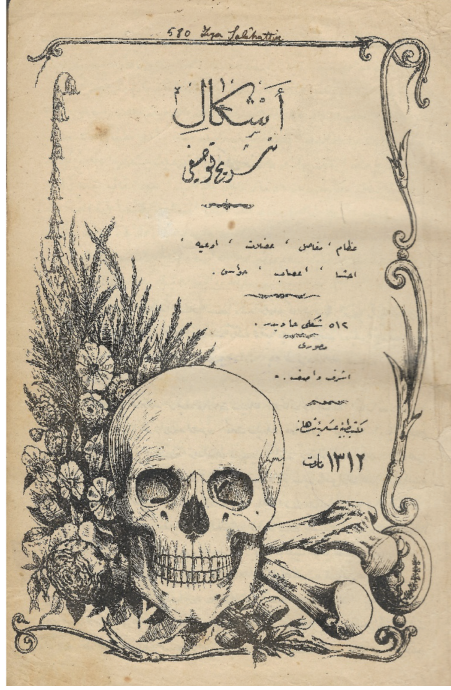 580 Ziya Salihattin
أشكال
تشريح توصيفى
عظام ، مفاصل ، عضلات ، اوعيه ،
احشا ، اعصاب ، حواس .
٥١٢ شكلى حاويدر .
مصورى
اشرف واصف .
١٣١٢ مارت